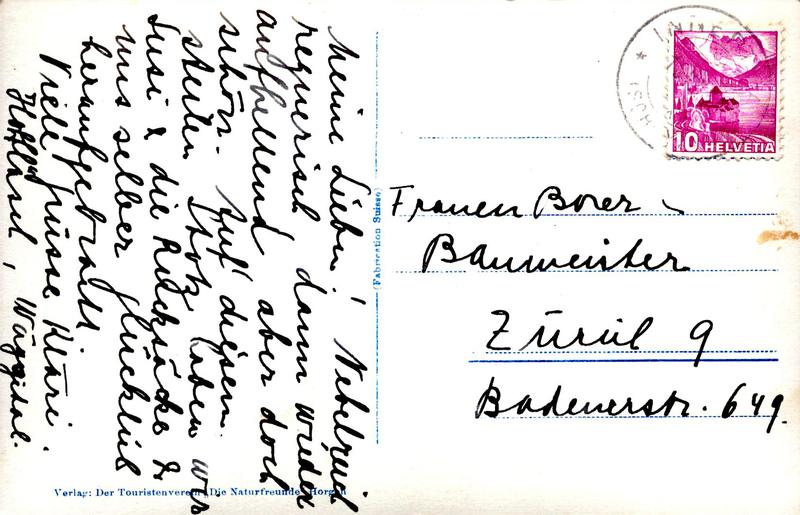 Meine Lieben! Nebelreich
regnerisch dann wieder
aufhellend aber doch
schön. Auf diesem
steilen Stotz haben wir
Susi & die Rucksäcke &
uns selber glücklich
heraufgebracht.
Viele Grüsse Kläri.
Wäggital.
Verlag: Der Touristenverein „Die Naturfreunde" Horgen
(Fabrication Suisse)
10 HELVETIA
Frauen Borer
Baumeister
Zürich 9
Badenerstr. 649.